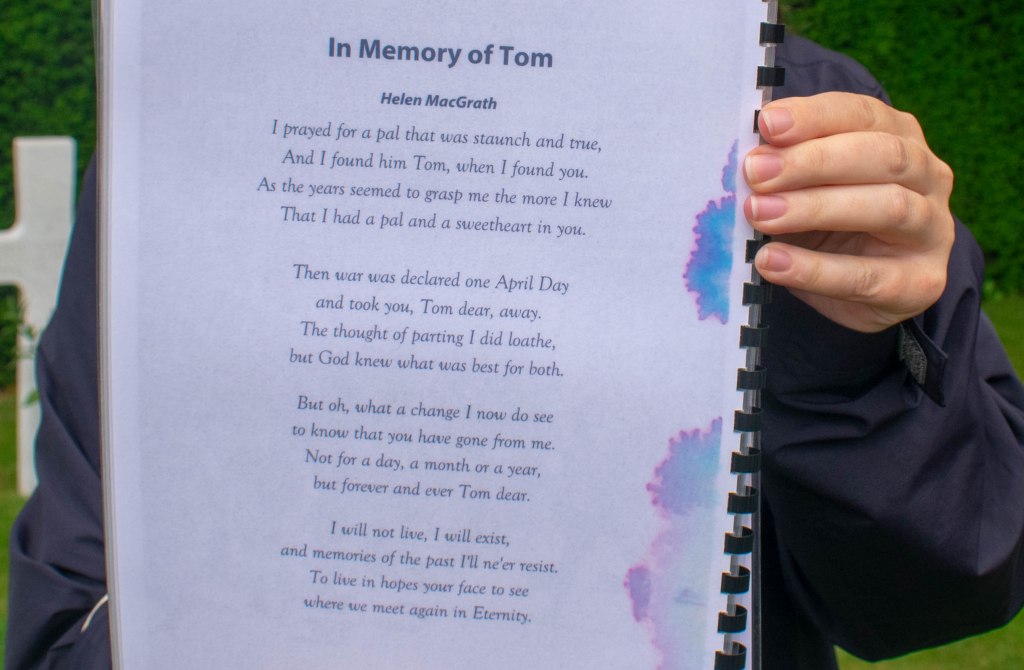 In Memory of Tom
Helen MacGrath
I prayed for a pal that was staunch and true,
And I found him Tom, when I found you.
As the years seemed to grasp me the more I knew
That I had a pal and a sweetheart in you.
Then war was declared one April Day
and took you, Tom dear, away.
The thought of parting I did loathe,
but God knew what was best for both.
But oh, what a change I now do see
to know that you have gone from me.
Not for a day, a month or a year,
but forever and ever Tom dear.
I will not live, I will exist,
and memories of the past I'll ne'er resist.
To live in hopes your face to see
where we meet again in Eternity.